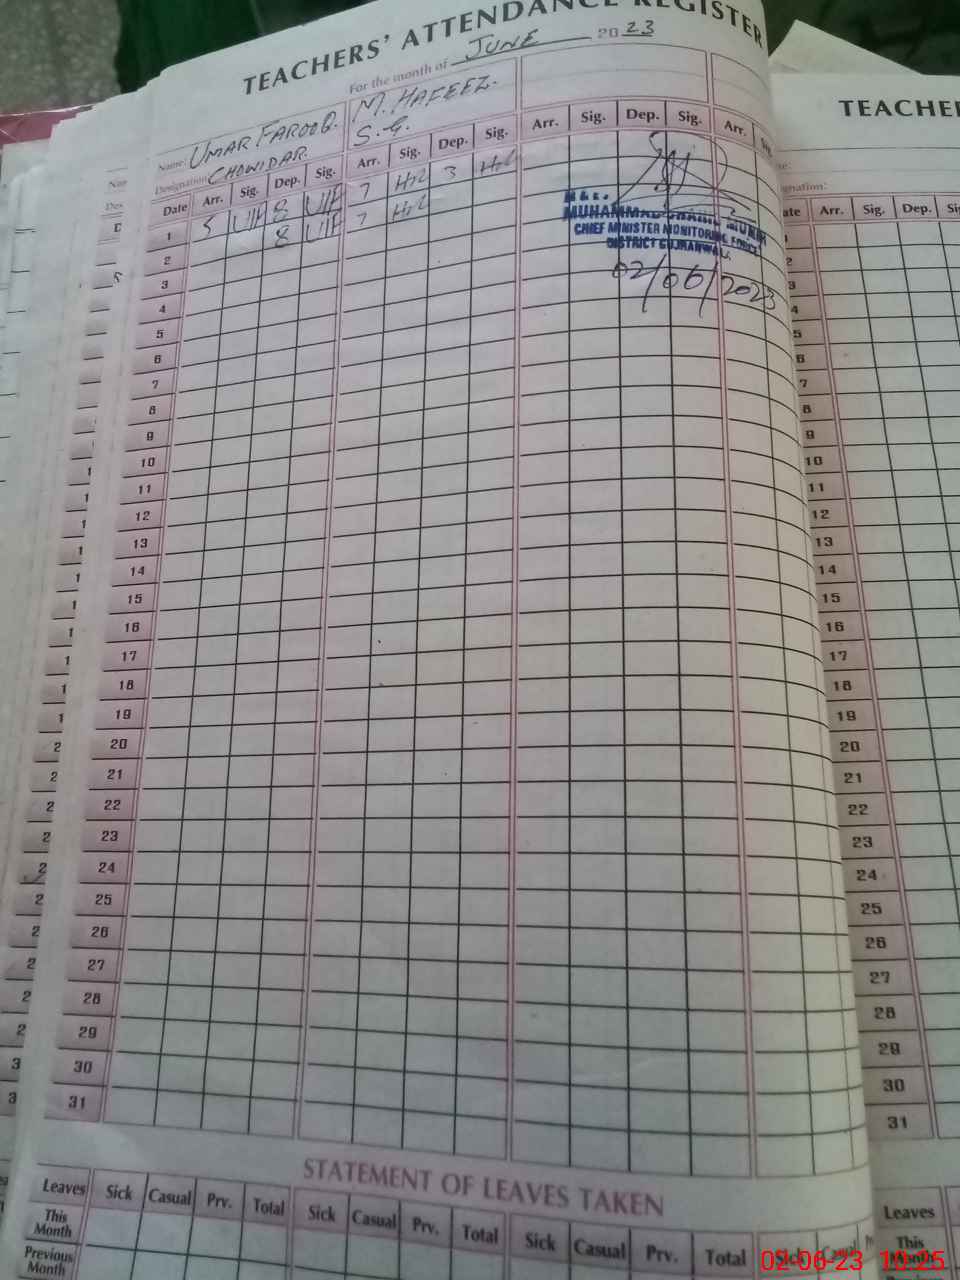 TEACHERS' ATTENDANCE REGISTER
For the month of JUNE 2023
Name: UMAR FAROOQ. M. HAFEEZ.
Designation: CHOWIDAR. S.G.
Date Arr. Sig. Dep. Sig. Arr. Sig. Dep. Sig. Arr. Sig. Dep. Sig. Arr.
1 5 U/F 8 U/F 7 3
2 8 U/F 7
3
4
5
6
7
8
9
10
11
12
13
14
15
16
17
18
19
20
21
22
23
24
25
26
27
28
29
30
31
MUHAMMAD
CHIEF MINISTER MONITORING FORCE
DISTRICT GUJRANWALA.
02/06/2023
STATEMENT OF LEAVES TAKEN
Leaves Sick Casual Prv. Total Sick Casual Prv. Total Sick Casual Prv. Total Sick Casual
This Month
Previous Month
TEACHER
Arr. Sig. Dep.
1
2
3
4
5
6
7
8
9
10
11
12
13
14
15
16
17
18
19
20
21
22
23
24
25
26
27
28
29
30
31
Leaves
This Month
02-06-23 10:25